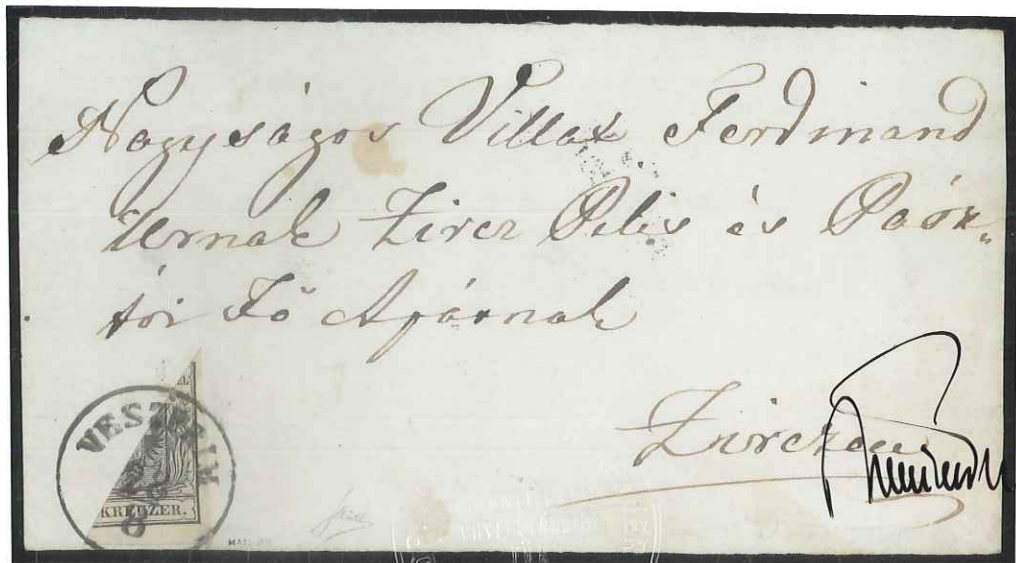 Nagyságos Villax Ferdinand
Urnak Zircz Pilis és Pász-
tói Fő Apátnak
Zirczen
VESZPRIM
8
KREUZER.